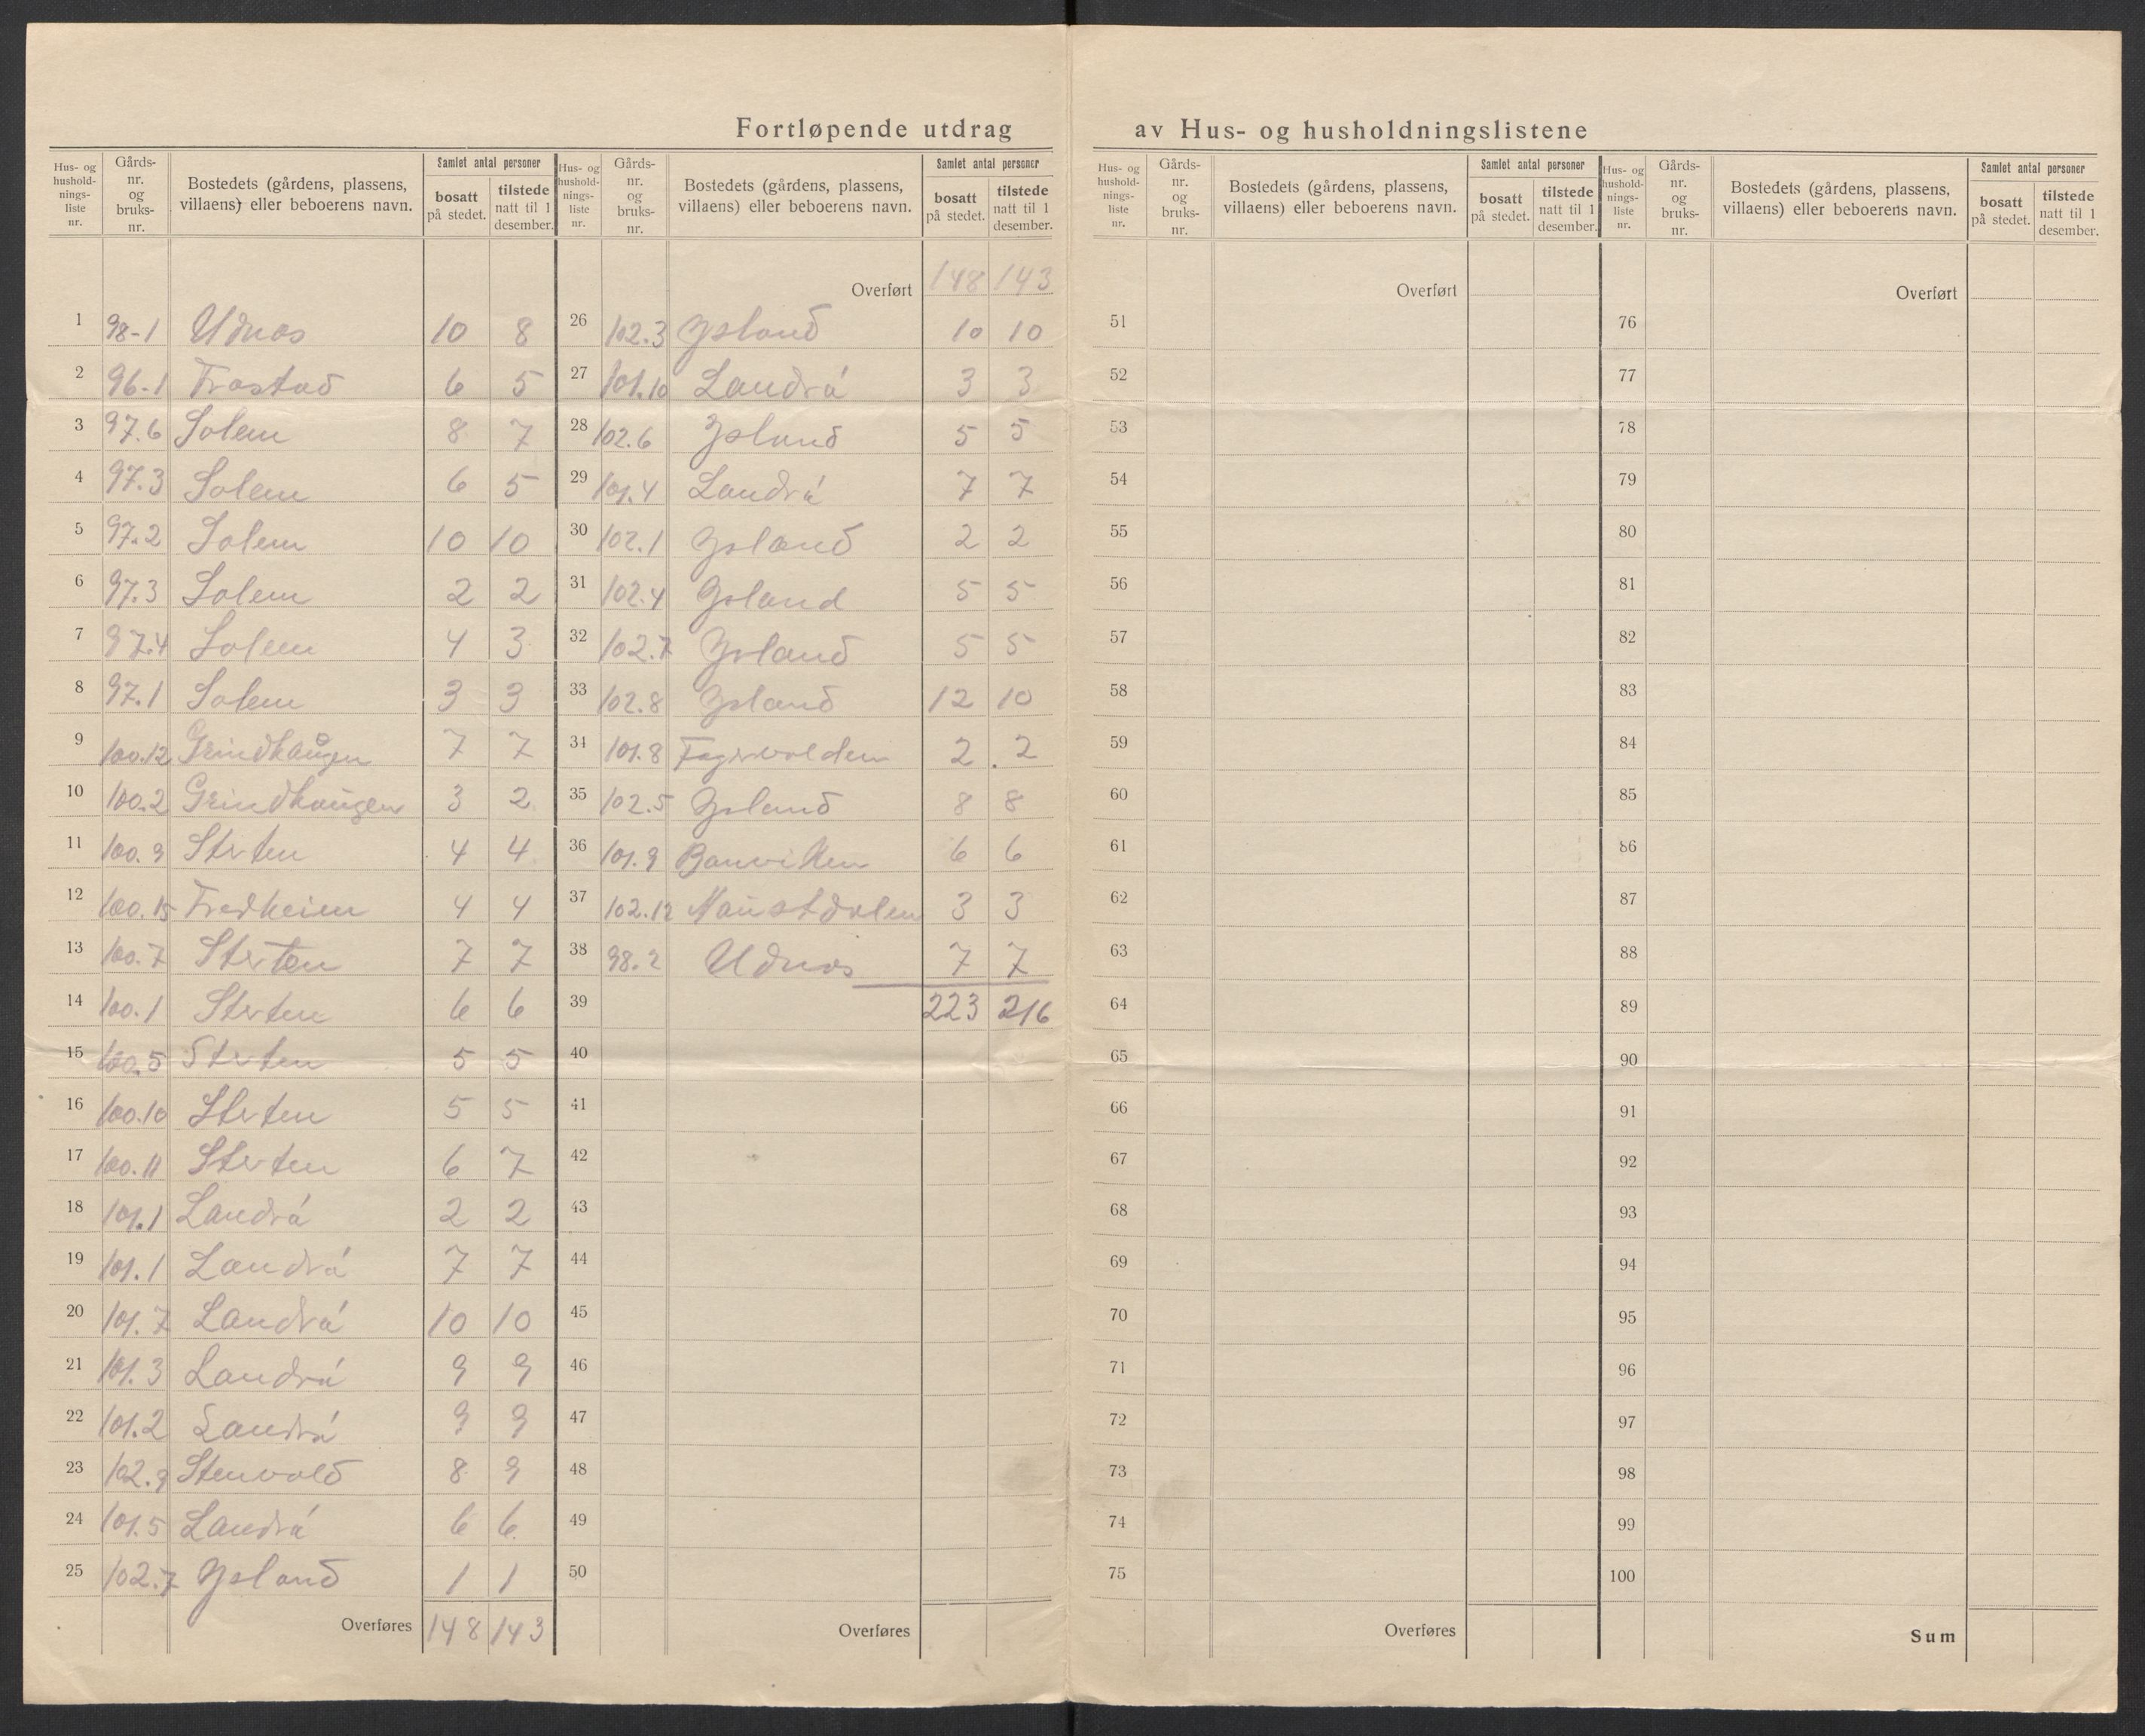 Fortløpende utdrag av Hus- og husholdningslistene
Hus- og hushold-nings-liste nr. Gårds-nr. og bruks-nr. Bostedets (gårdens, plassens, villaens) eller beboerens navn. Samlet antal personer bosatt på stedet. tilstede natt til 1 desember.
1 98-1 Udnæs 10 8
2 96-1 Trøstad 6 5
3 97.6 Solem 8 7
4 97.3 Solem 6 5
5 97.2 Solem 10 10
6 97.3 Solem 2 2
7 97.4 Solem 4 3
8 97.1 Solem 3 3
9 100.12 Grindhaugen 7 7
10 100.2 Grindhaugen 3 2
11 100.9 Sterten 4 4
12 100.15 Fredheim 4 4
13 100.7 Sterten 7 7
14 100.1 Sterten 6 6
15 100.5 Sterten 5 5
16 100.10 Sterten 5 5
17 100.11 Sterten 6 7
18 101.1 Landrá 2 2
19 101.1 Landrá 7 7
20 101.7 Landrá 10 10
21 101.3 Landrá 9 9
22 101.2 Landrá 9 9
23 102.9 Stenvold 8 9
24 101.5 Landrá 6 6
25 102.7 Ysland 1 1
Overføres 148 143
Hus- og hushold-nings-liste nr. Gårds-nr. og bruks-nr. Bostedets (gårdens, plassens, villaens) eller beboerens navn. Samlet antal personer bosatt på stedet. tilstede natt til 1 desember.
Overført 148 143
26 102.3 Ysland 10 10
27 101.10 Landrá 3 3
28 102.6 Ysland 5 5
29 101.4 Landrá 7 7
30 102.1 Ysland 2 2
31 102.4 Ysland 5 5
32 102.7 Ysland 5 5
33 102.8 Ysland 12 10
34 101.8 Fagervolden 2 2
35 102.5 Ysland 8 8
36 101.9 Bonviken 6 6
37 102.12 Naustdalen 3 3
38 98.2 Udnæs 7 7
39 223 216
40
41
42
43
44
45
46
47
48
49
50
Overføres
Hus- og hushold-nings-liste nr. Gårds-nr. og bruks-nr. Bostedets (gårdens, plassens, villaens) eller beboerens navn. Samlet antal personer bosatt på stedet. tilstede natt til 1 desember.
Overført
51
52
53
54
55
56
57
58
59
60
61
62
63
64
65
66
67
68
69
70
71
72
73
74
75
Overføres
Hus- og hushold-nings-liste nr. Gårds-nr. og bruks-nr. Bostedets (gårdens, plassens, villaens) eller beboerens navn. Samlet antal personer bosatt på stedet. tilstede natt til 1 desember.
Overført
76
77
78
79
80
81
82
83
84
85
86
87
88
89
90
91
92
93
94
95
96
97
98
99
100
Sum